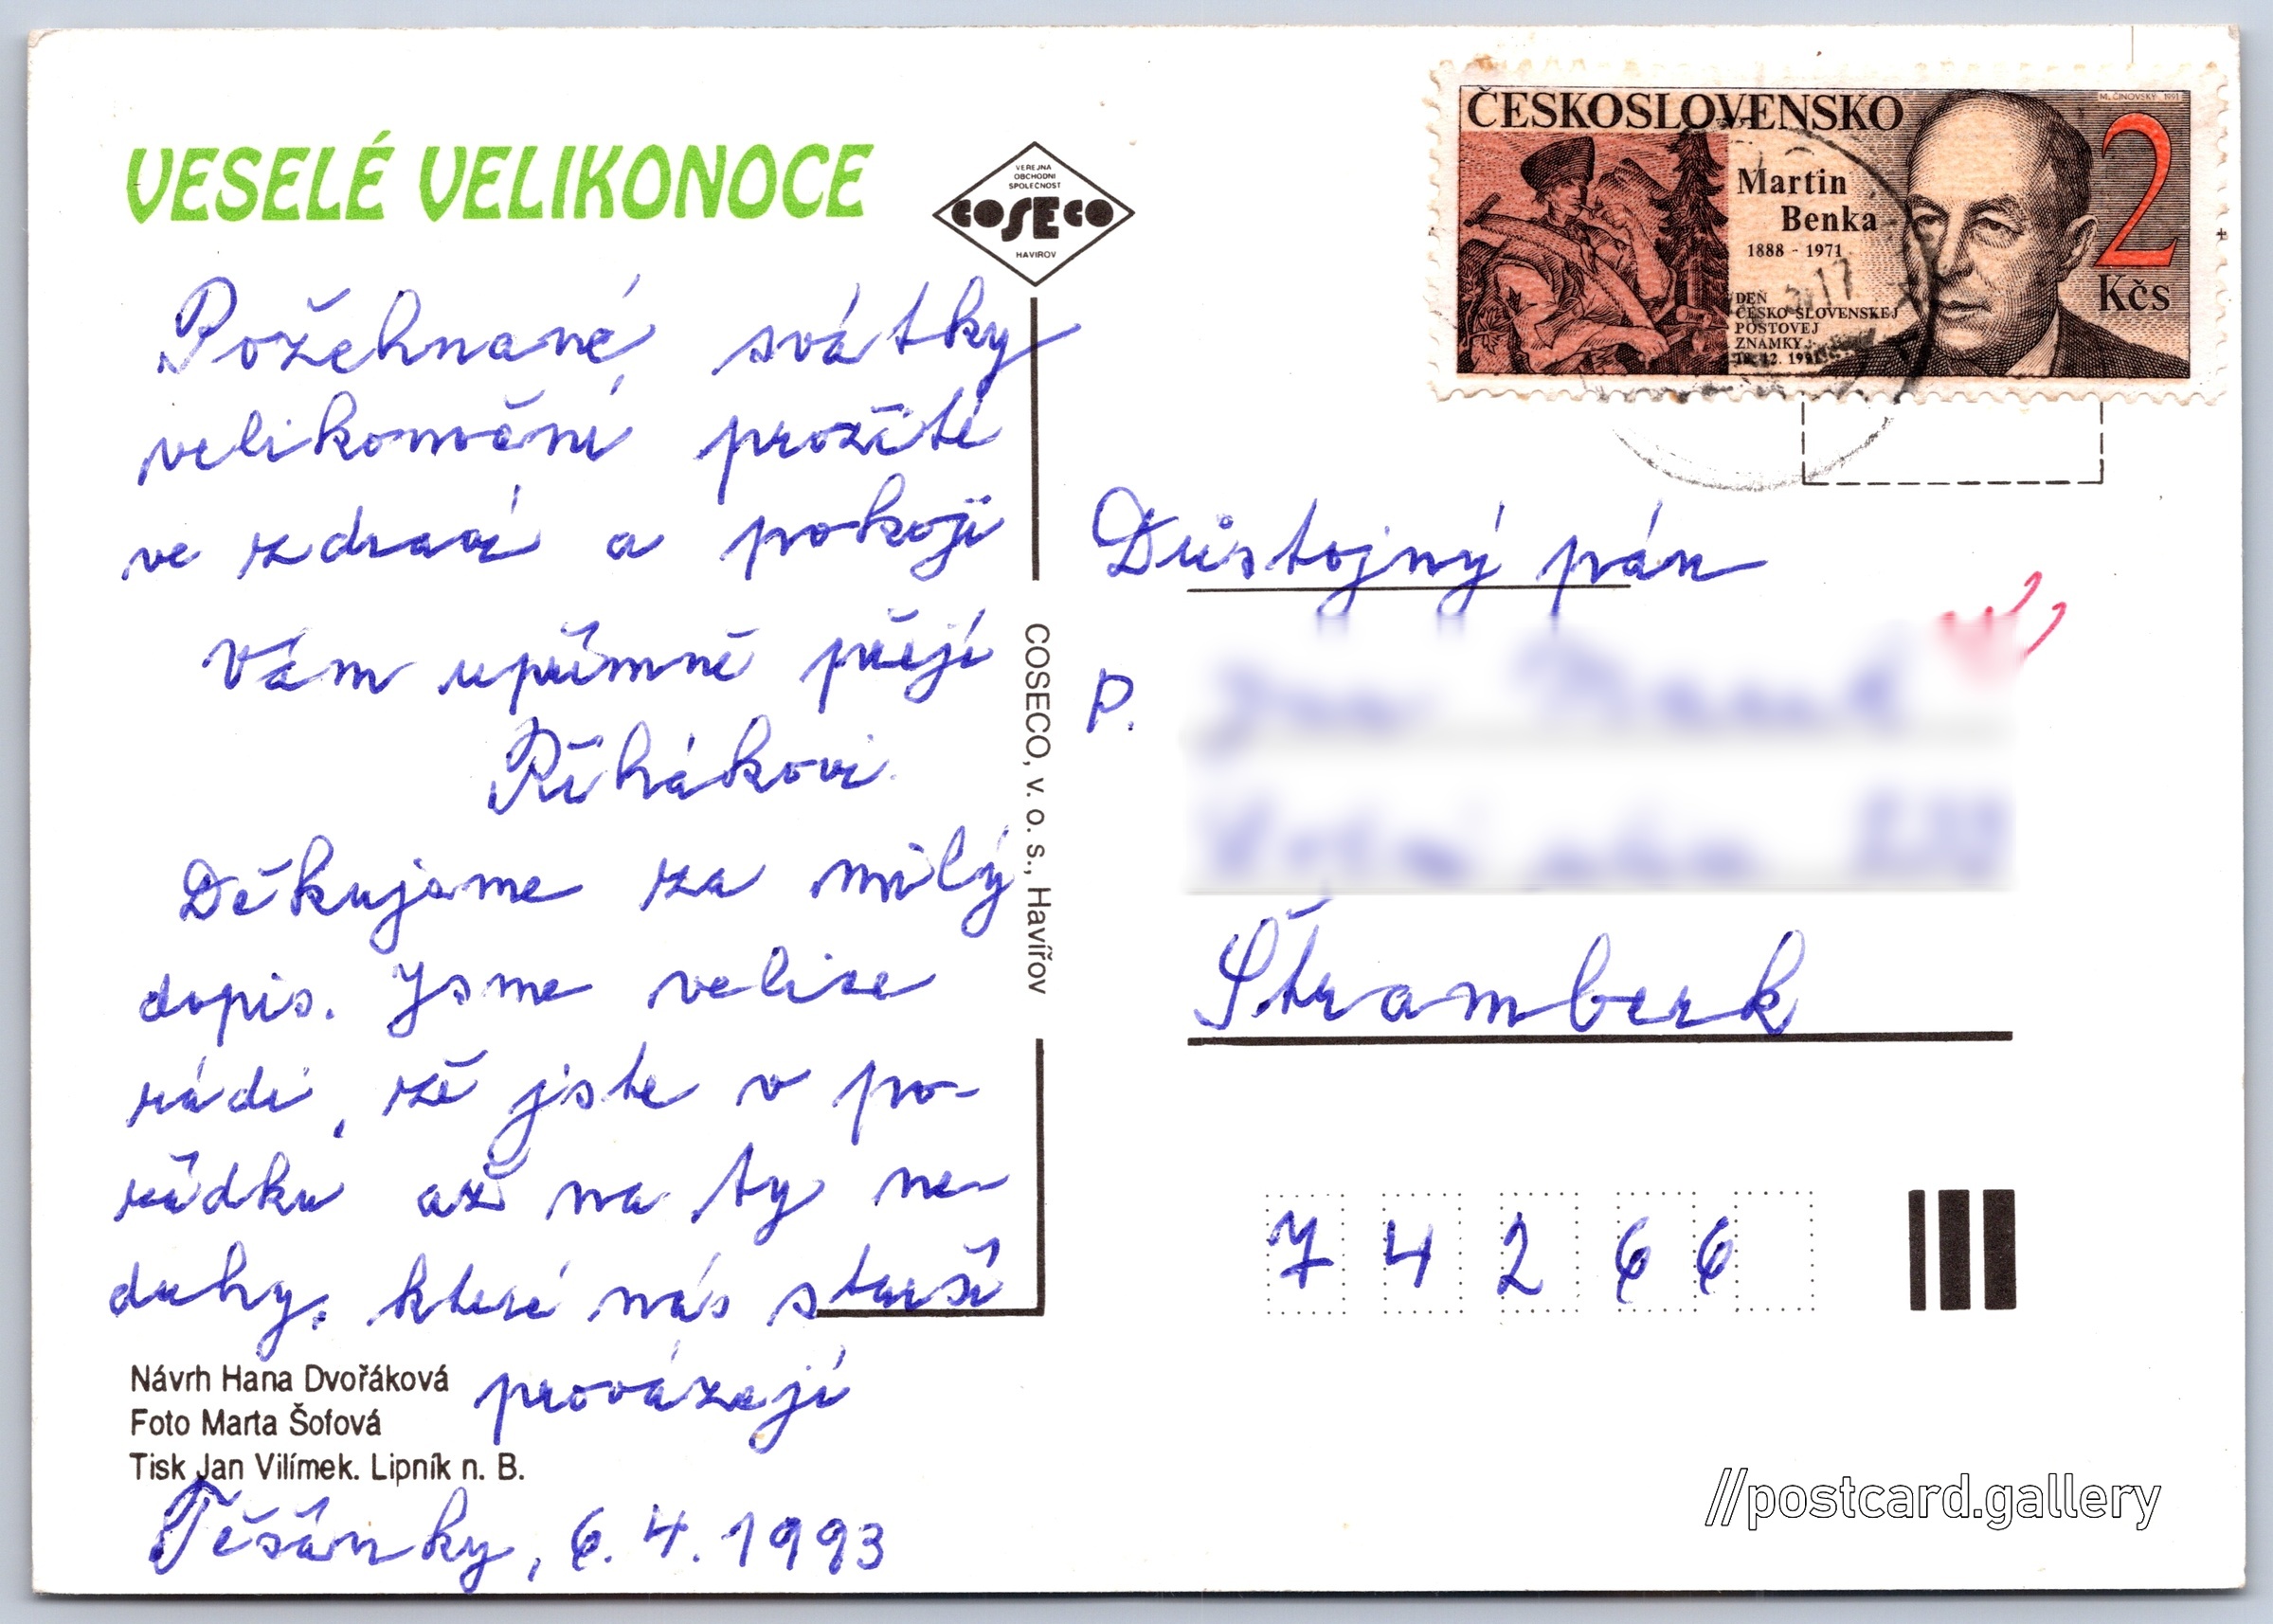 VESELÉ VELIKONOCE
VEREJNA
OBCHODNI
SPOLEČNOST
COSECO
HAVIROV
Požehnané svátky
velikonoční prožité
ve zdraví a pokoji
Vám upřímně přejí
Říhákovi.
Děkujeme za milý
dopis. Jsme velice
rádi, že jste v po-
řádku až na ty ne-
duhy, které nás starší
provázejí
Návrh Hana Dvořáková
Foto Marta Šofová
Tisk Jan Vilímek. Lipník n. B.
Těšánky, 6.4.1993
COSECO, v. o. s., Havířov
ČESKOSLOVENSKO
M. ČINOVSKÝ 1991
Martin
Benka
1888 - 1971
2
Kčs
DEŇ
ČESKO-SLOVENSKEJ
POŠTOVEJ
ZNÁMKY
18. 12. 1991
Důstojný pán
P.
Štramberk
7 4 2 6 6
//postcard.gallery